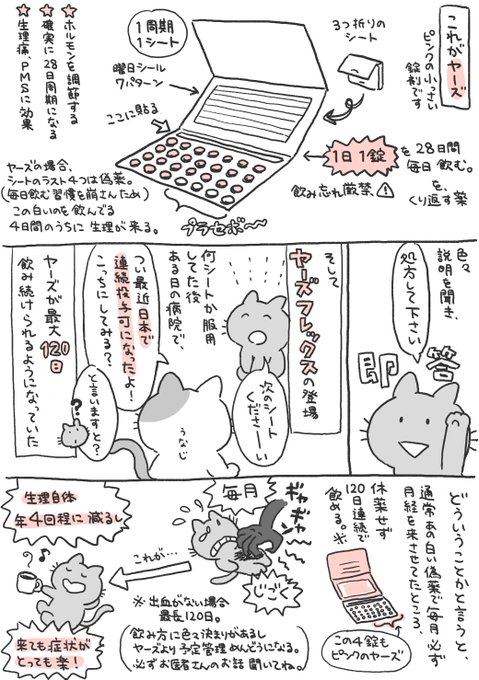 これがヤーズ
ピンクの小っさい
錠剤です
3つ折りの
シート
1周期
1シート
曜日シール
7パターン
ここに貼る
★ホルモンを調節する
★確実に28日周期になる
★生理痛、PMSに効果
1日1錠
を28日間
毎日飲む。
を、
くり返す薬
飲み忘れ厳禁⚠
ヤーズの場合、
シートのラスト4つは偽薬。
(毎日飲む習慣を崩さんため)
この白いのを飲んでる
4日間のうちに生理が来る。
プラセボ〜〜
色々
説明を聞き、
処方して下さい
即答
そして
ヤーズフレックスの登場
次のシート
くださーい
何シートか服用
してた後
ある日の病院で、
つい最近日本で
連続投与可になったよ!
こっちにしてみる?
うなじ
?
と言いますと?
ヤーズが最大
120日
飲み続けられるようになっていた
どういうことかと言うと、
通常あの白い偽薬で毎月必ず
月経を来させてたところ、
休薬せず
120日連続で
飲める。※
この4錠も
ピンクのヤーズ
毎月
ギャギャン
じごく
これが…
※出血がない場合
最長120日。
(飲み方に色々決まりがあるし
ヤーズより予定管理めんどうになる。
必ずお医者さんのお話聞いてね。)
生理自体
年4回程に減るし
来ても症状が
とっても楽!